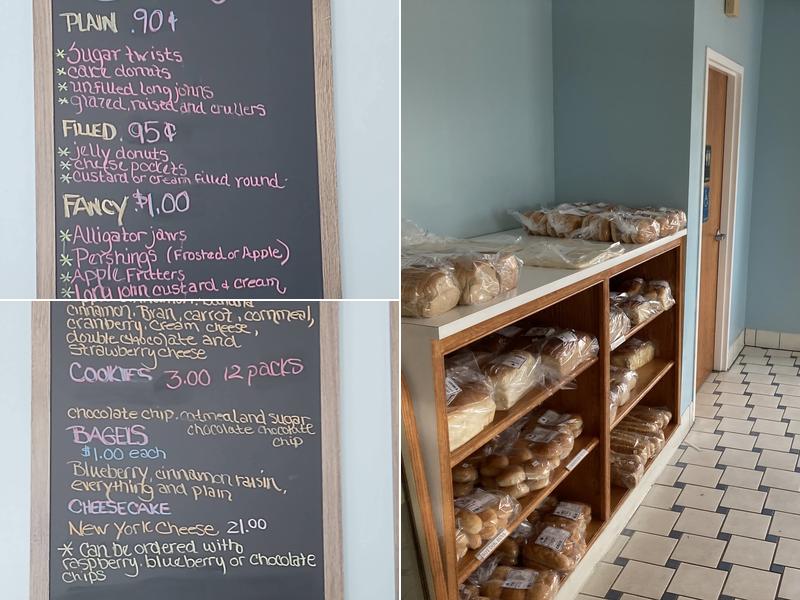 PLAIN .90¢
*Sugar twists
*cake donuts
*unfilled long johns
*glazed, raised and crullers
FILLED .95¢
*jelly donuts
*cheese pockets
*custard or cream filled round
FANCY $1.00
*Alligator jaws
*Pershings (Frosted or Apple)
*Apple Fritters
*Long john custard & cream
cinnamon, Ryan, carrot, cornmeal,
cranberry, cream cheese,
double chocolate and
strawberry cheese
COOKIES 3.00 12 packs
chocolate chip, oatmeal and sugar
chocolate chocolate
chip
BAGELS
$1.00 each
Blueberry, cinnamon raisin,
everything and plain
CHEESECAKE
New York Cheese 21.00
* can be ordered with
raspberry, blueberry or chocolate
chips